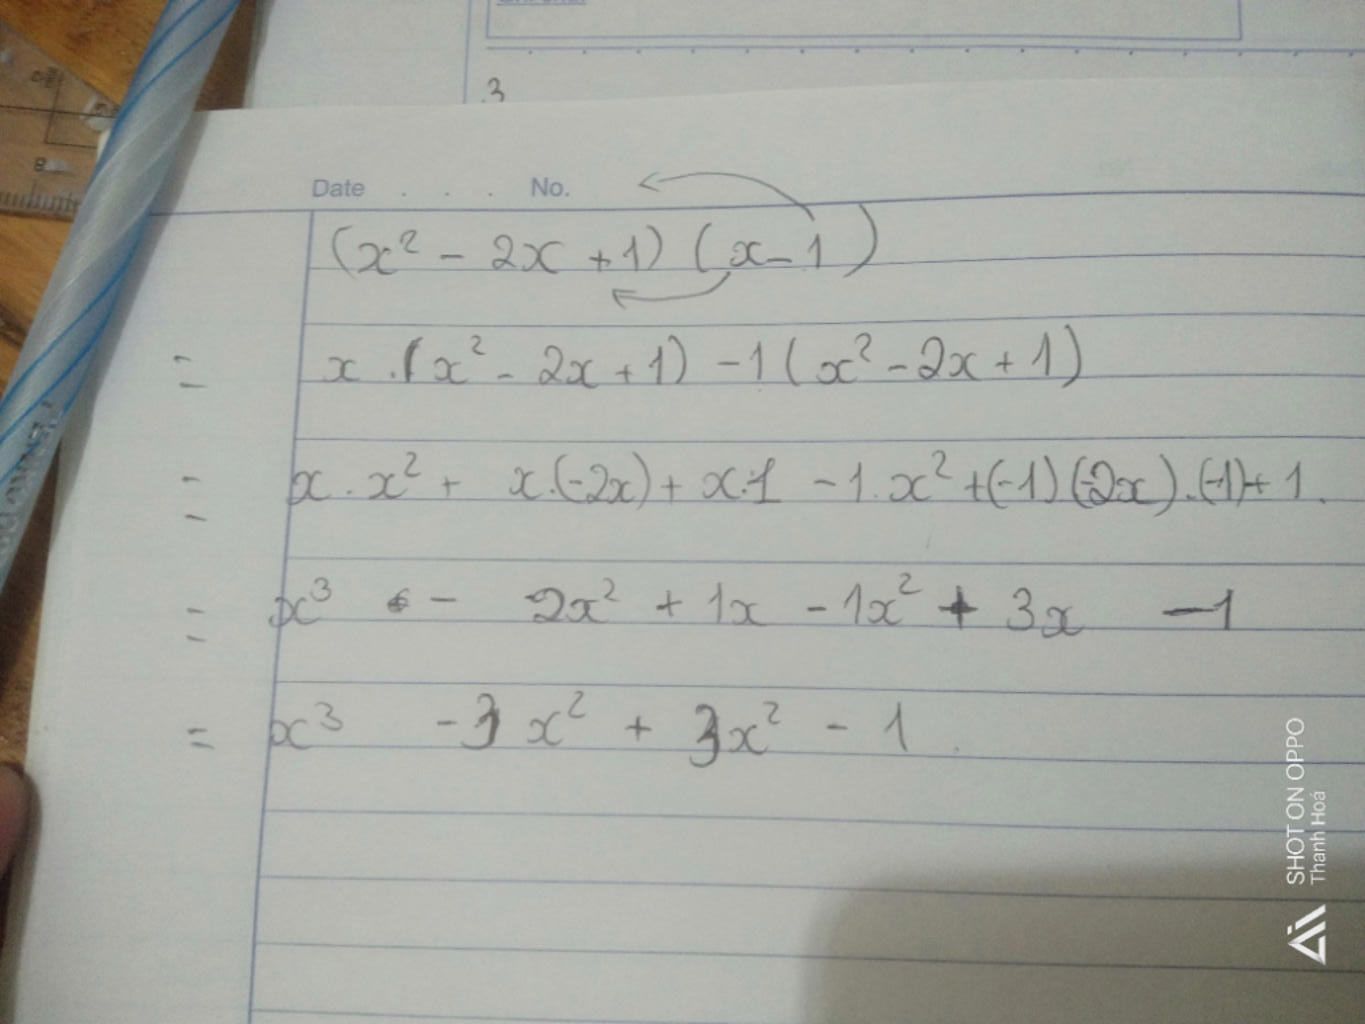 3
Date . . . No.
(x² - 2x + 1) (x - 1)
= x . (x² - 2x + 1) - 1 (x² - 2x + 1)
= x . x² + x.(-2x) + x.1 - 1.x² + (-1) (-2x) . (-1) + 1.
= x³ - 2x² + 1x - 1x² + 3x - 1
= x³ - 3x² + 3x² - 1
SHOT ON OPPO
Thanh Hoá